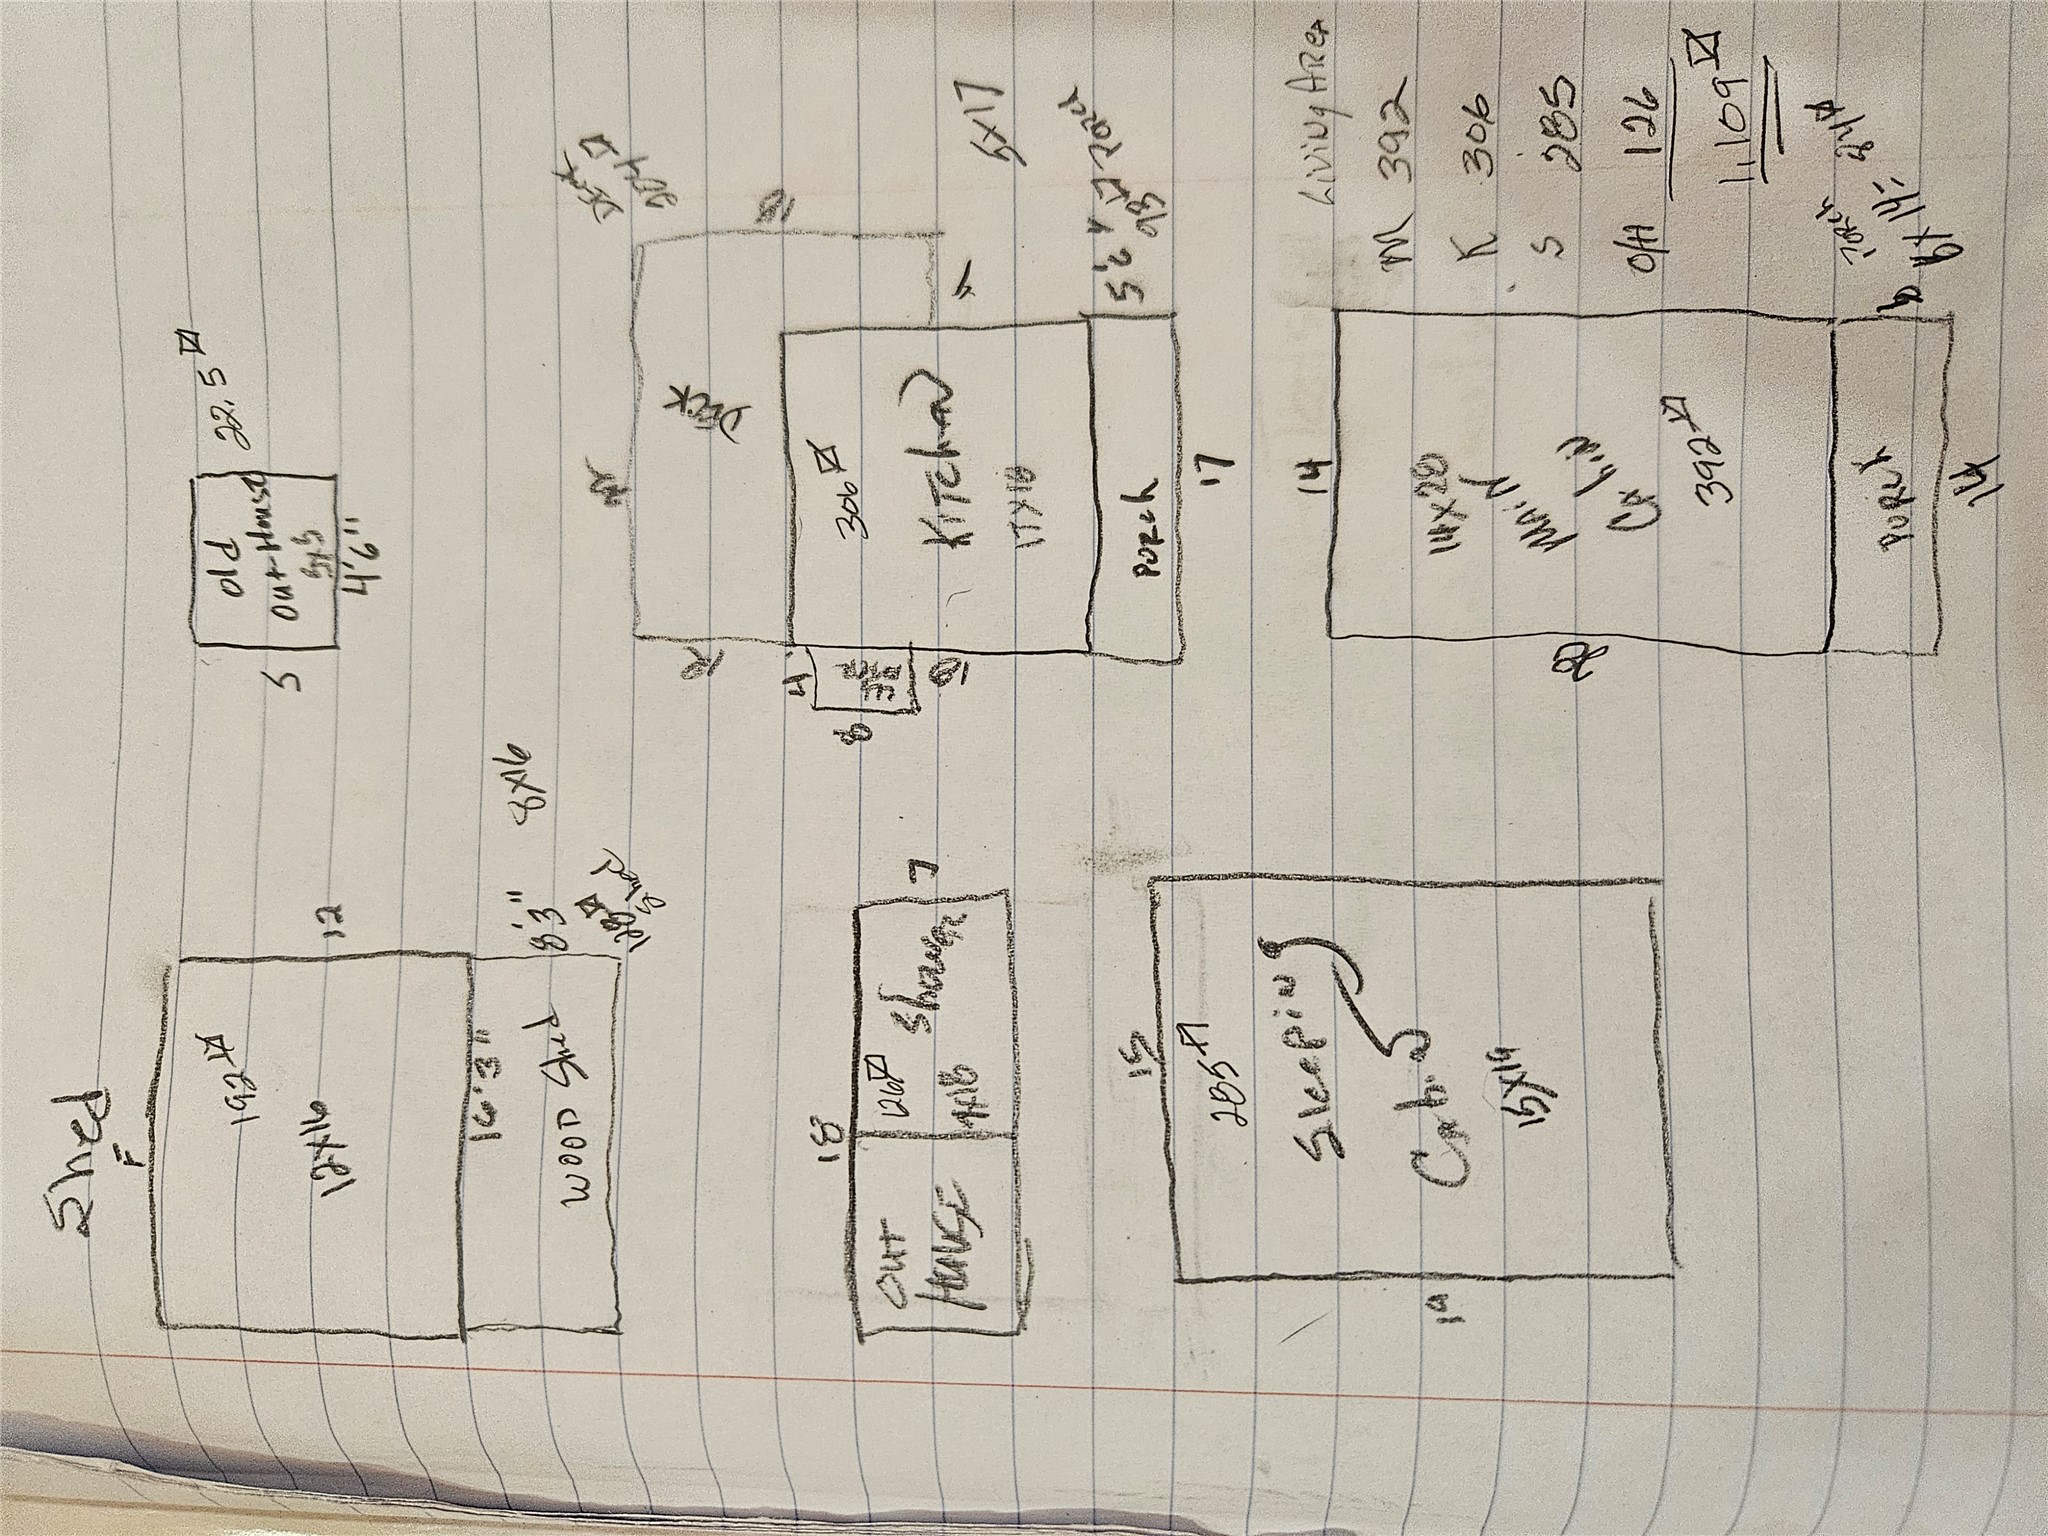 Shed
F
192
12x16
12
16'3"
WOOD Shed
8'3"
8x16
128
Shed
Old
Out-House
5
4'6"
22.5
18
OUT
HOUSE
126
Shower
7x18
7
Deck
204
Deck
12
18
306
Kitchen
17x18
4
8
18
Porch
17
5x17
Porch
15
285
Sleeping
Cabin
15x19
19
14
14x28
Main
Cabin
392
28
Porch
14
Living Area
M 392
K 306
S 285
O/H 126
1,109
Porch
6x14=